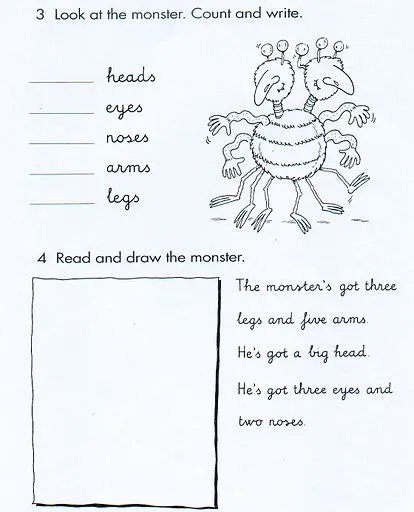 3 Look at the monster. Count and write.
heads
eyes
noses
arms
legs
4 Read and draw the monster.
The monster's got three
legs and five arms.
He's got a big head.
He's got three eyes and
two noses.